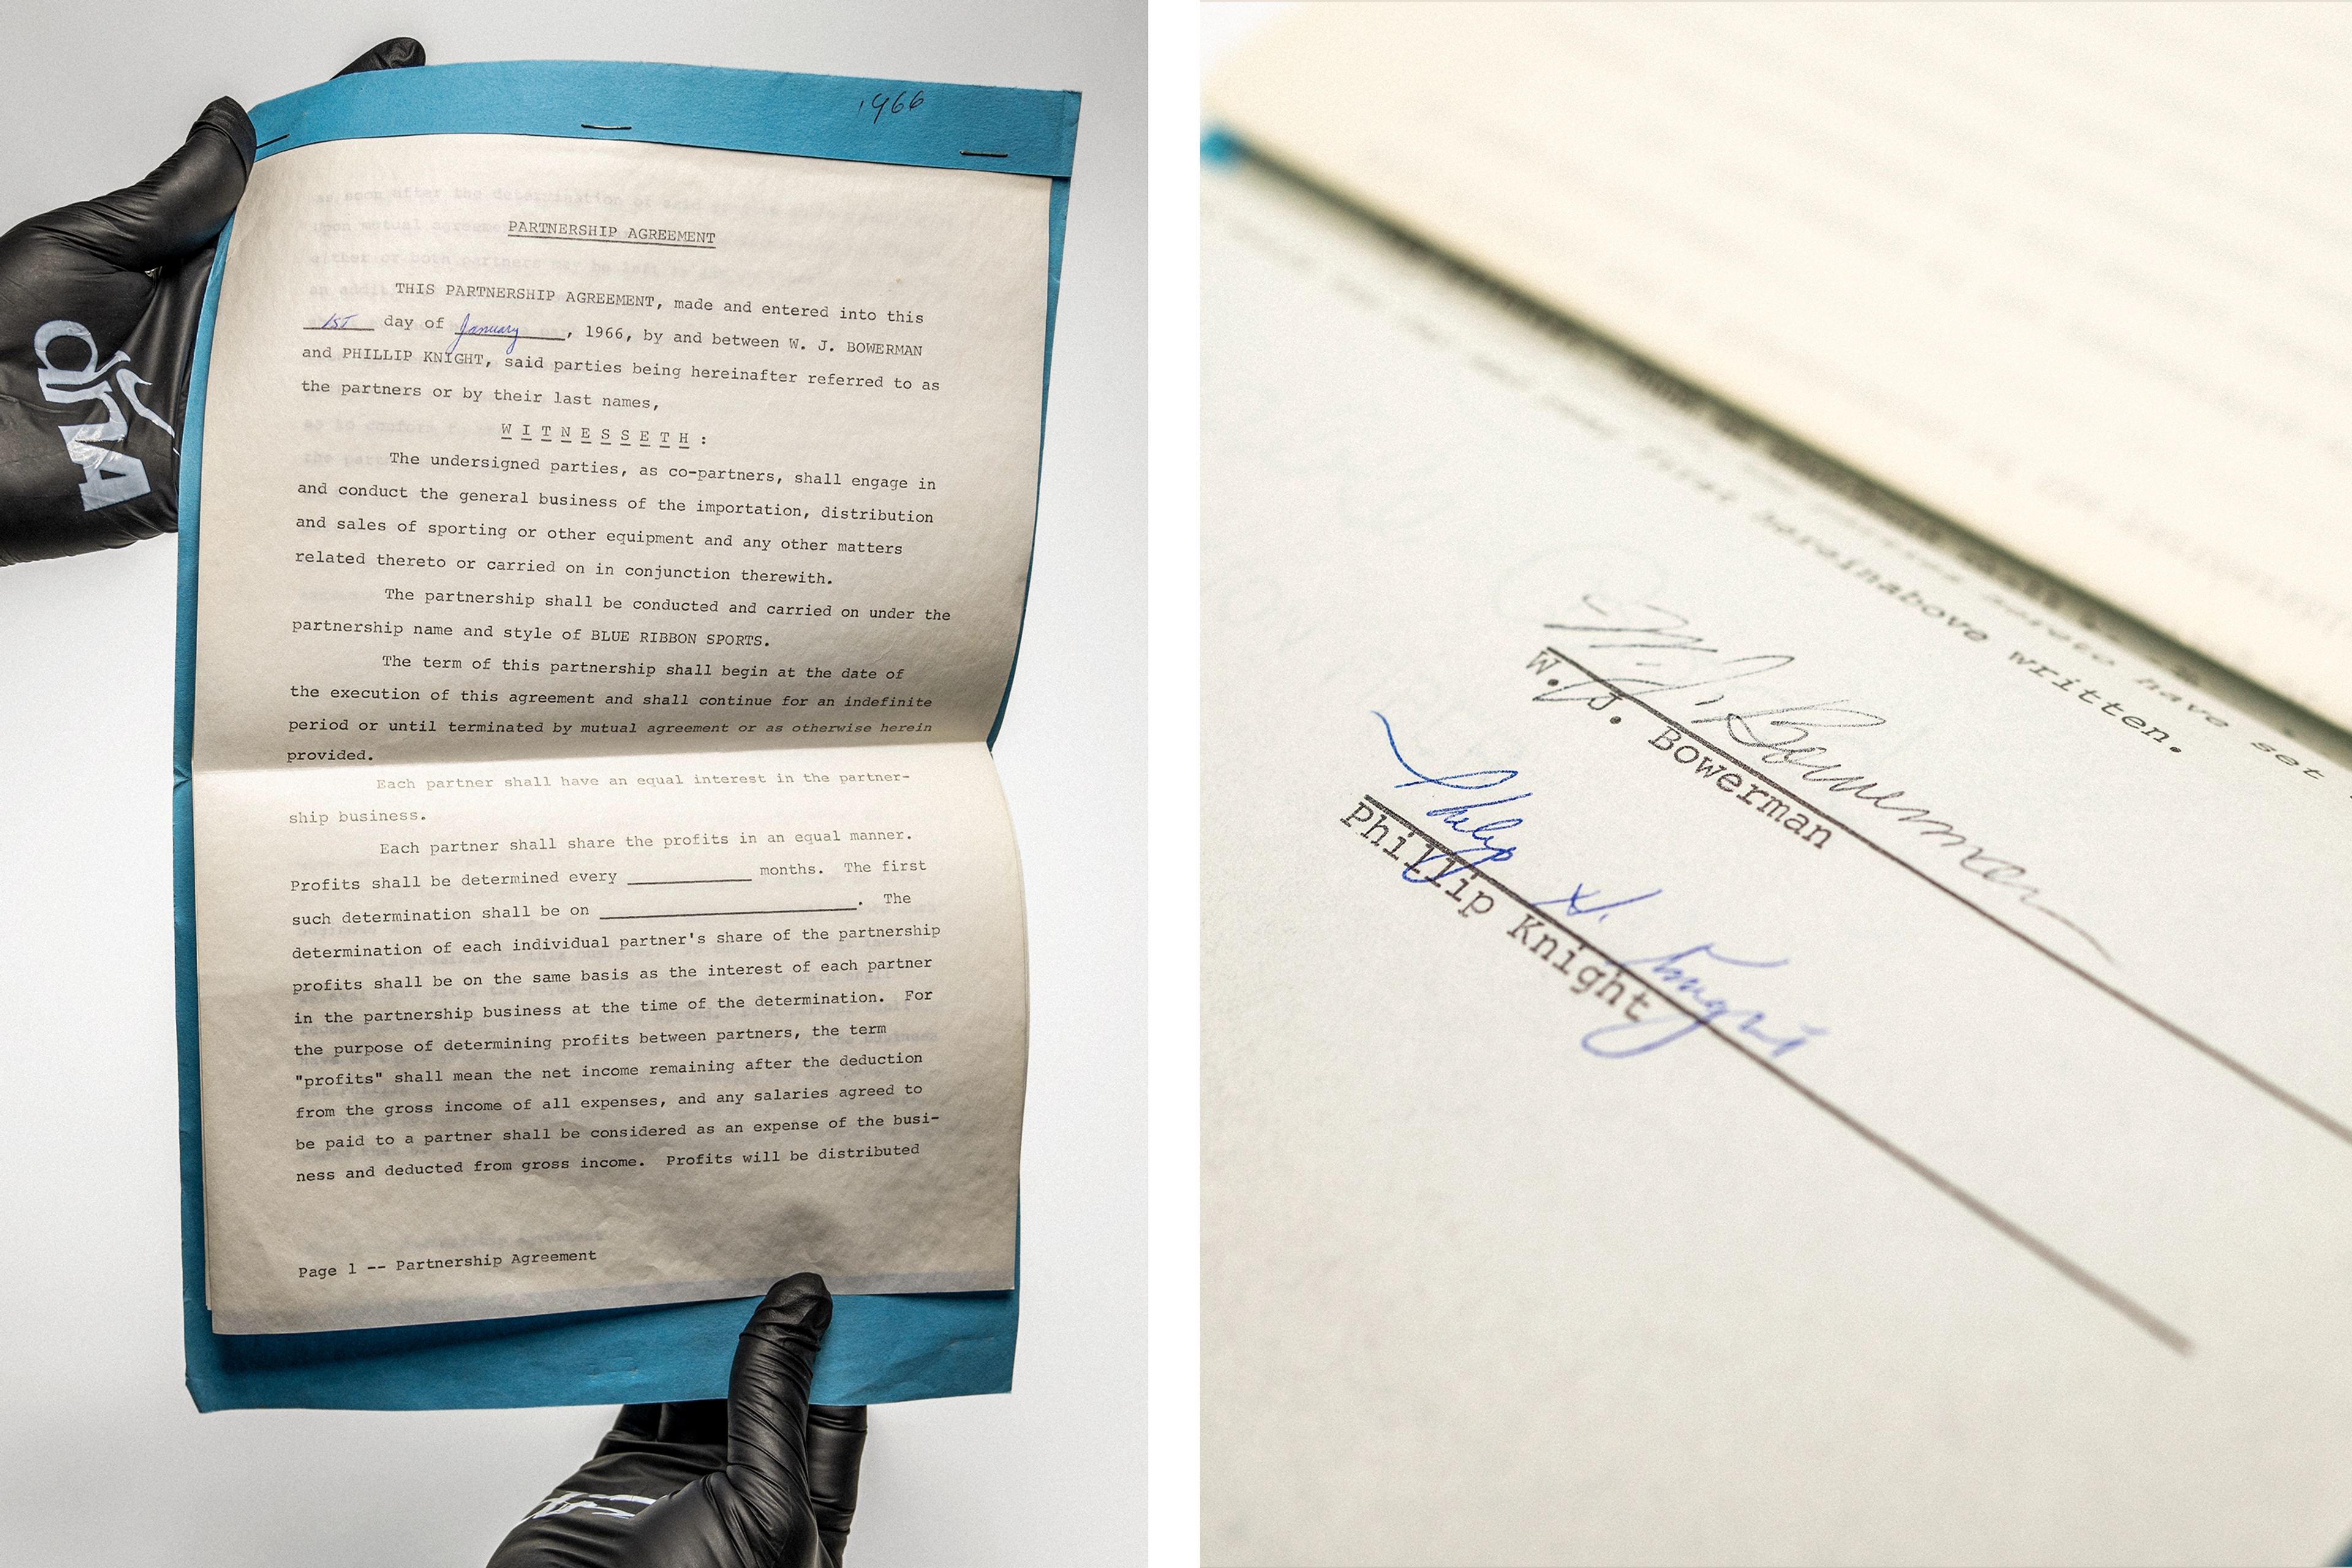 1966
PARTNERSHIP AGREEMENT
THIS PARTNERSHIP AGREEMENT, made and entered into this
1ST day of January, 1966, by and between W. J. BOWERMAN
and PHILLIP KNIGHT, said parties being hereinafter referred to as
the partners or by their last names,
W I T N E S S E T H :
The undersigned parties, as co-partners, shall engage in
and conduct the general business of the importation, distribution
and sales of sporting or other equipment and any other matters
related thereto or carried on in conjunction therewith.
The partnership shall be conducted and carried on under the
partnership name and style of BLUE RIBBON SPORTS.
The term of this partnership shall begin at the date of
the execution of this agreement and shall continue for an indefinite
period or until terminated by mutual agreement or as otherwise herein
provided.
Each partner shall have an equal interest in the partner-
ship business.
Each partner shall share the profits in an equal manner.
Profits shall be determined every ____________ months. The first
such determination shall be on _________________________. The
determination of each individual partner's share of the partnership
profits shall be on the same basis as the interest of each partner
in the partnership business at the time of the determination. For
the purpose of determining profits between partners, the term
"profits" shall mean the net income remaining after the deduction
from the gross income of all expenses, and any salaries agreed to
be paid to a partner shall be considered as an expense of the busi-
ness and deducted from gross income. Profits will be distributed
Page 1 -- Partnership Agreement
DNA
have set
first hereinabove written.
W. J. Bowerman
W. J. Bowerman
Philip H. Knight
Phillip Knight